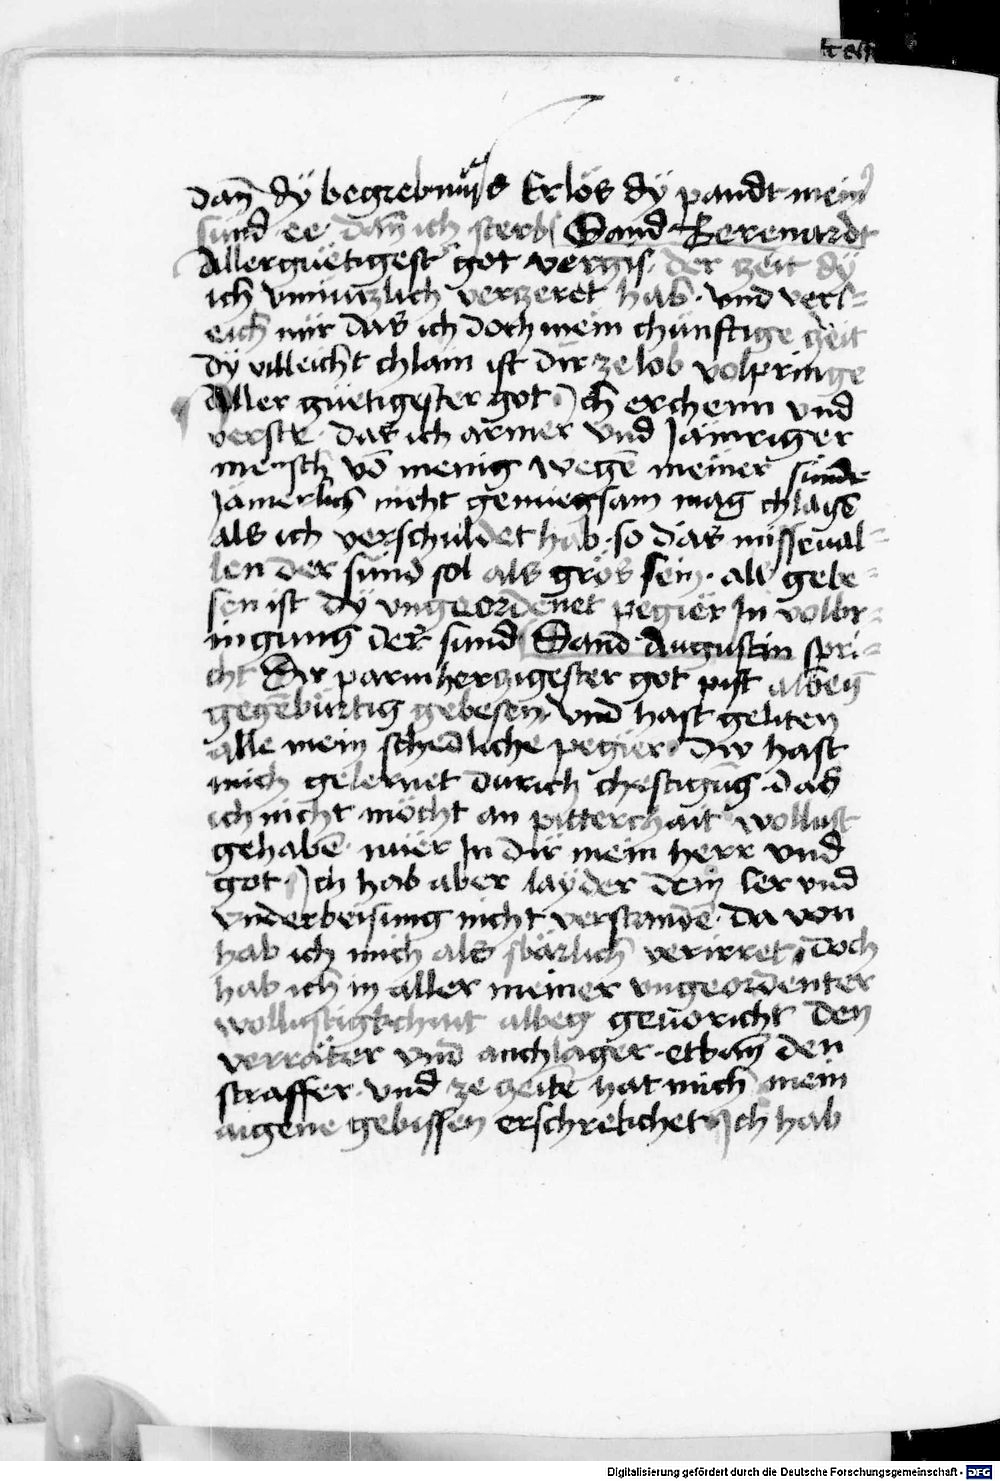 dan̄ dÿ begrebnuÿs Erlös dÿ pandt mein̄
sünd ee dan̄ ich sterb Sand Berenardt
Allergüetigest' got vergis der zeit dÿ
ich vnnüczlich verzeret hab · vnd verl=
eich mir das ich doch mein chünftige zeit
dÿ villeicht chlain ist dir ze lob volpringe
Aller güetigester got Ich erchenn vnd
verste · das ich armer vnd Jämriger
mensch vō menig wegē meiner sünde
Jämerlich nicht genuegsam mag chlagē
als ich verschuldet hab · so das missēual=
len der sünd sol als grös sein · als gebe=
sen ist dÿ vngeordenet pegier In volbr=
ingung der sünd Sand Augustin spri=
cht Dw parmherczigester got pist albeg
gegēbürtig gebesen vnd hast geliten
alle mein schedliche pegier · Dw hast
mich gelernet durich chestigūg · das
ich nicht möcht an pitterchait wollust
gehabē · nuer In dir mein herr vnd
got · Ich hab aber layder dein ler vnd
vnderbeisung nicht verstandē · da von
hab ich mich als sbärlich verirret · doch
hab ich in aller meiner vngeordenter
wollustigkchait albeg geuöricht den
verräter vnd anchlager · etban̄ den
straffer · vnd ze zeitē hat mich mein
aigene gebissen erschrekchet Ich hab
Digitalisierung gefördert durch die Deutsche Forschungsgemeinschaft - DFG